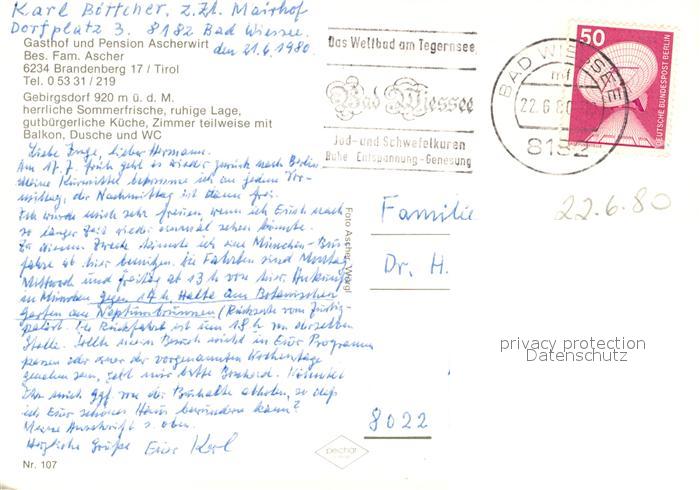 Karl Böttcher, z.Zt. Mairhof
Dorfplatz 3. 8182 Bad Wiessee.
den 21.6.1980.
Gasthof und Pension Ascherwirt
Bes. Fam. Ascher
6234 Brandenberg 17 / Tirol
Tel. 0 53 31 / 219
Gebirgsdorf 920 m ü. d. M.
herrliche Sommerfrische, ruhige Lage,
gutbürgerliche Küche, Zimmer teilweise mit
Balkon, Dusche und WC
Liebe Inge, lieber Hermann.
Am 17.7. früh geht es wieder zurück nach Berlin
Meine Kurmittel bekomme ich an jedem Vor-
mittag, der Nachmittag ist dann frei.
Ich würde mich sehr freuen, wenn ich Euch nach
so langer Zeit wieder einmal sehen könnte.
Zu diesem Zweck könnte ich eine München-Bus-
fahrt ab hier benutzen. Die Fahrten sind Montag
Mittwoch und Freitag ab 13 h von hier. Ankunft
in München gegen 14 h. Halte am Botanischen
Garten am Neptunbrunnen (Rückseite vom Justiz-
palast. Die Rückfahrt ist um 18 h von derselben
Stelle. Sollte mein Besuch nicht in Euer Programm
passen oder einer der vorgenannten Wochentage
genehm sein, gebt mir bitte Bescheid. Könntet
Ihr mich ggf. von der Bushalte abholen, so daß
ich Euer schönes Haus bewundern kann?
Meine Anschrift s. oben.
Herzliche Grüße Euer Karl
Nr. 107
Foto Ascher, Wörgl
Das Weltbad am Tegernsee
Bad Wiessee
Jod- und Schwefelkuren
Ruhe Entspannung - Genesung
BAD WIESSEE
mf
22.6.80
8182
50
DEUTSCHE BUNDESPOST BERLIN
22.6.80
Familie
Dr. H.
8022
privacy protection
Datenschutz